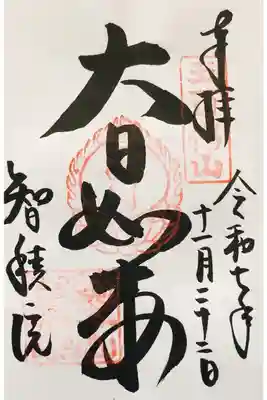 奉拝
令和七年
十一月二十二日
大日如来
智積院